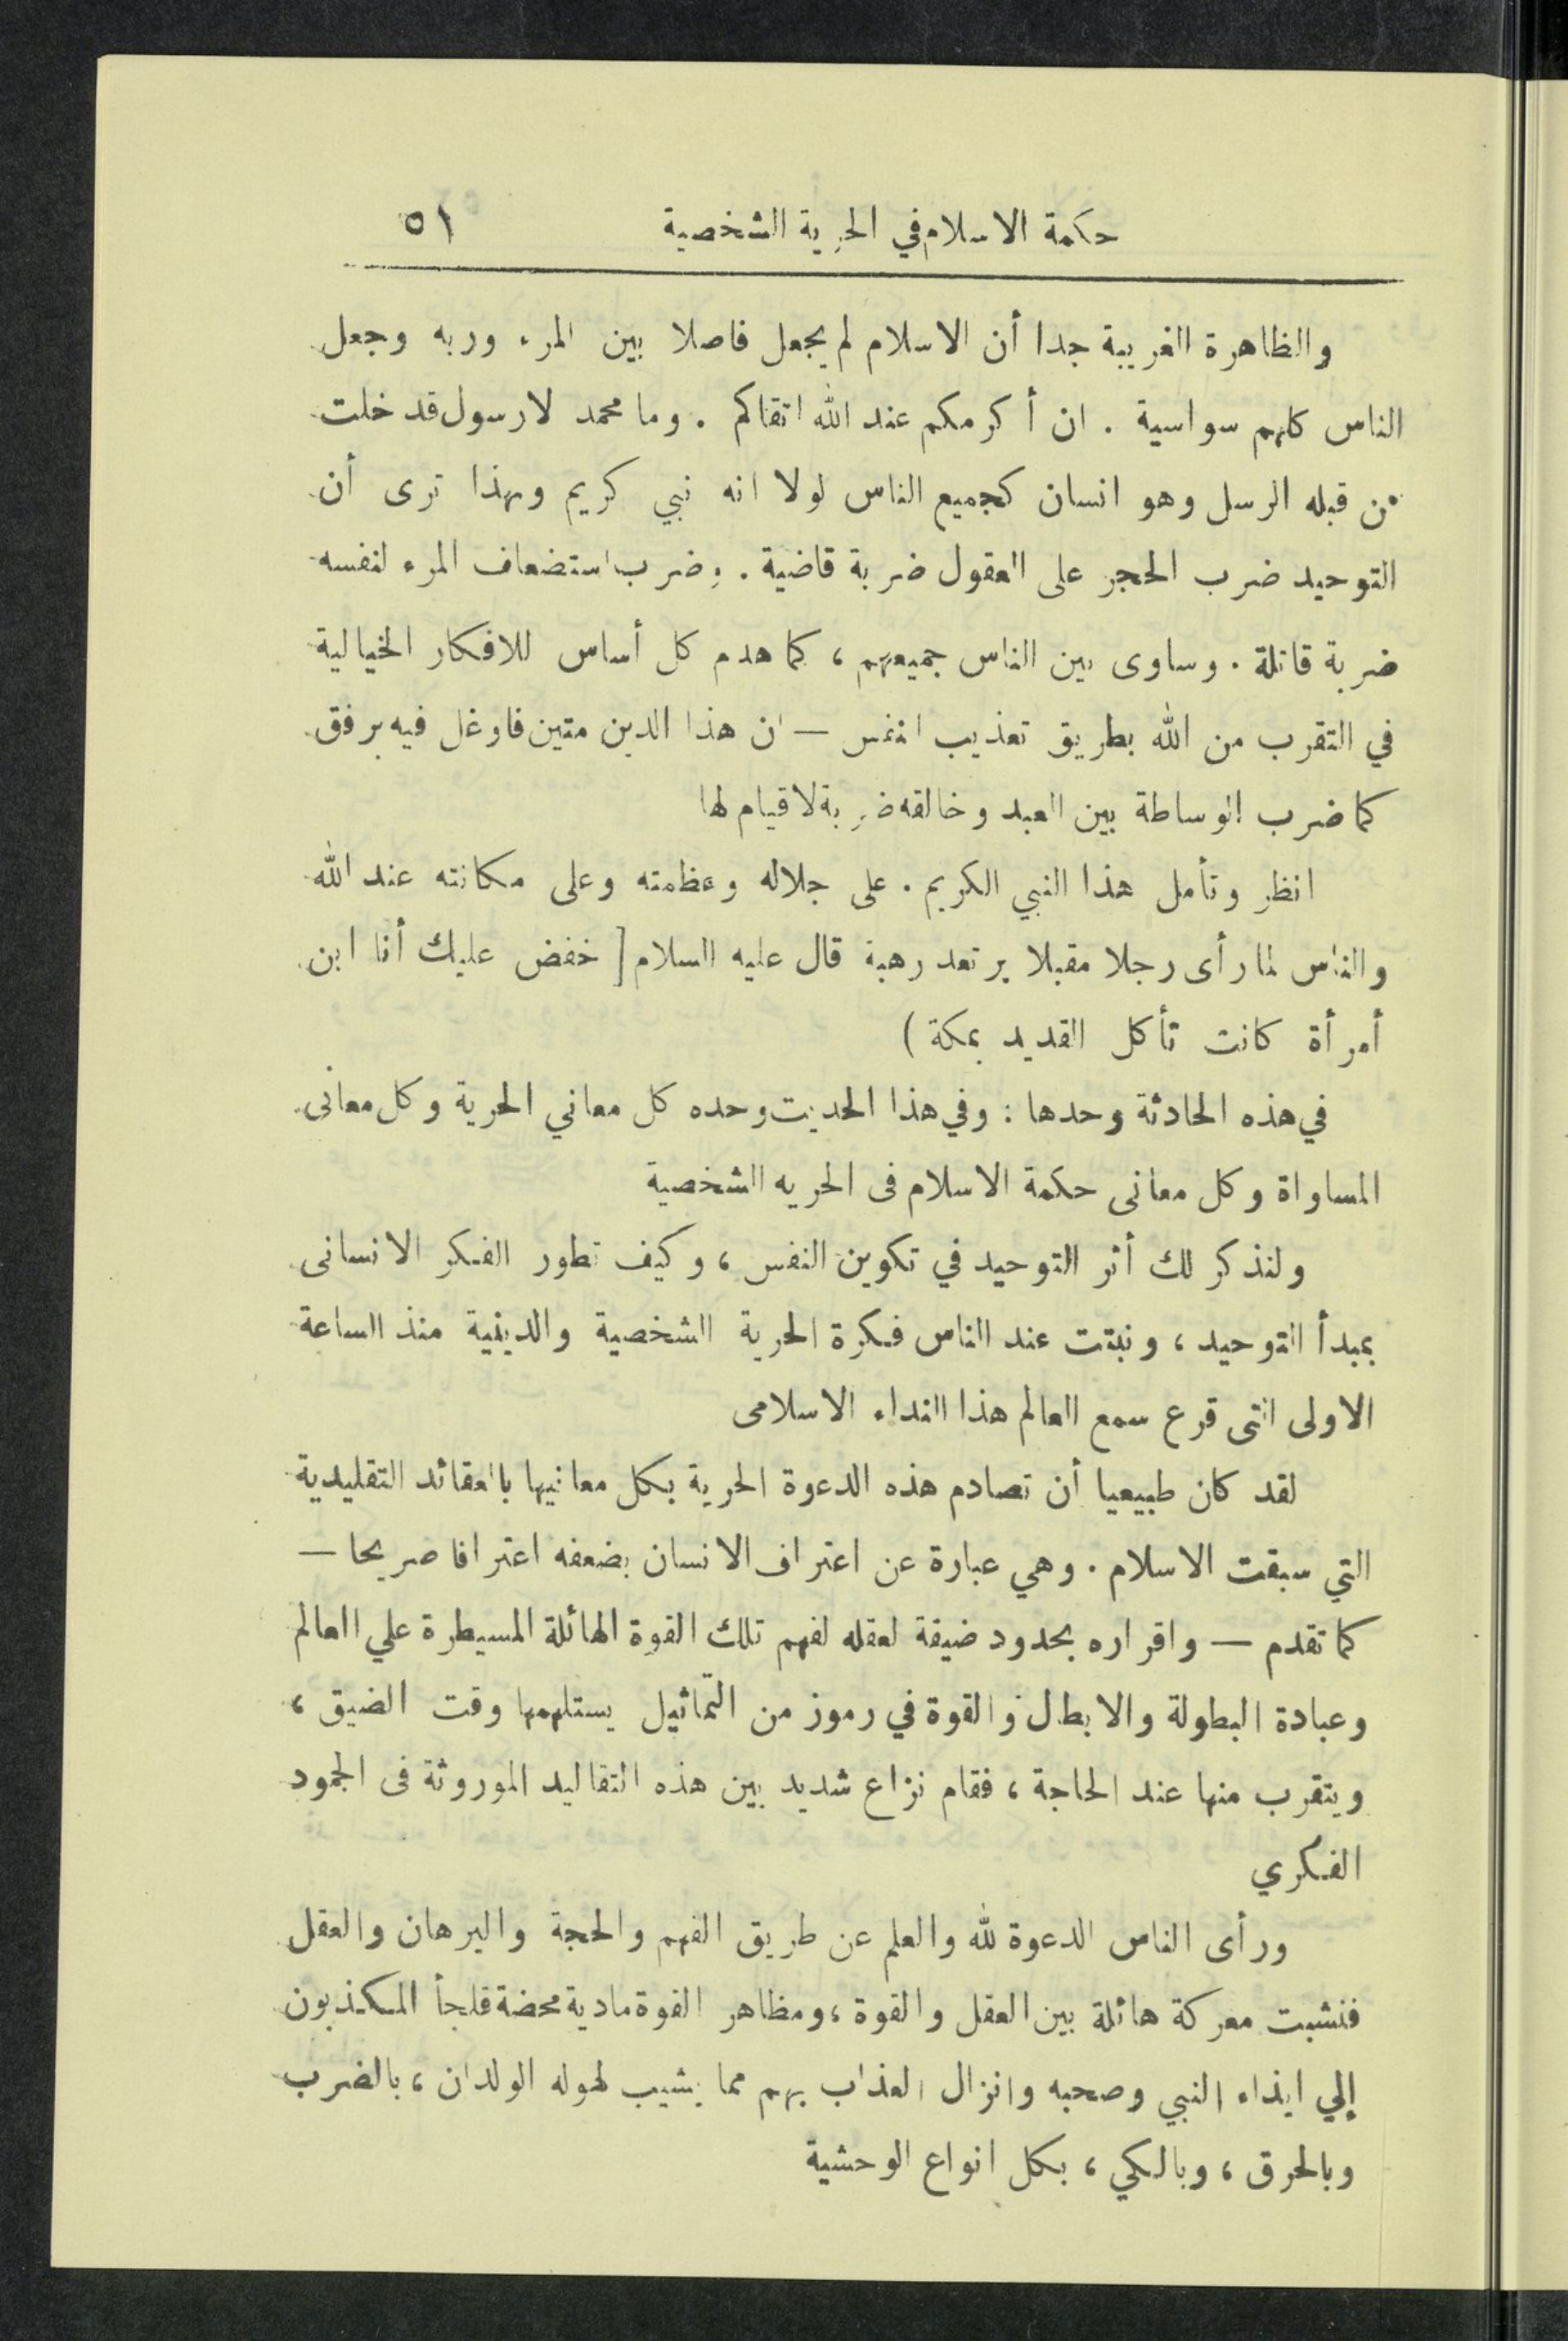 حكمة الاسلام في الحرية الشخصية ٥١
والظاهرة الغريبة جدا أن الاسلام لم يجعل فاصلا بين المرء وربه وجعل
الناس كلهم سواسية . ان أكرمكم عند الله اتقاكم . وما محمد لارسول قد خلت
من قبله الرسل وهو انسان كجميع الناس لولا انه نبي كريم وبهذا ترى أن
التوحيد ضرب الحجر على العقول ضربة قاضية . وضرب استضعاف المرء لنفسه
ضربة قاتلة . وساوى بين الناس جميعهم ، كما هدم كل أساس للافكار الخيالية
في التقرب من الله بطريق تعذيب النفس — ان هذا الدين متين فاوغل فيه برفق
كما ضرب الوساطة بين العبد وخالقه ضربة لا قيام لها
انظر وتأمل هذا النبي الكريم . على جلاله وعظمته وعلى مكانته عند الله
والناس لما رأى رجلا مقبلا يرتعد رهبة قال عليه السلام [ خفض عليك أنا ابن
أمرأة كانت تأكل القديد بمكة )
في هذه الحادثة وحدها : وفي هذا الحديث وحده كل معاني الحرية وكل معانى
المساواة وكل معانى حكمة الاسلام فى الحريه الشخصية
ولنذكر لك أثر التوحيد في تكوين النفس ، وكيف تطور الفكر الانسانى
بمبدأ التوحيد ، ونبتت عند الناس فكرة الحرية الشخصية والدينية منذ الساعة
الاولى التى قرع سمع العالم هذا النداء الاسلامى
لقد كان طبيعيا أن تصادم هذه الدعوة الحرية بكل معانيها بالعقائد التقليدية
التي سبقت الاسلام . وهي عبارة عن اعتراف الانسان بضعفه اعترافا صريحا —
كما تقدم — واقراره بحدود ضيقة لعقله لفهم تلك القوة الهائلة المسيطرة علي العالم
وعبادة البطولة والابطال والقوة في رموز من التماثيل يستلهمها وقت الضيق ،
ويتقرب منها عند الحاجة ، فقام نزاع شديد بين هذه التقاليد الموروثة فى الجمود
الفكري
ورأى الناس الدعوة لله والعلم عن طريق الفهم والحجة والبرهان والعقل
فنشبت معركة هائلة بين العقل والقوة ، ومظاهر القوة مادية محضة فلجأ المكذبون
إلي ايذاء النبي وصحبه وانزال العذاب بهم مما يشيب لهوله الولدان ، بالضرب
وبالحرق ، وبالكي ، بكل انواع الوحشية